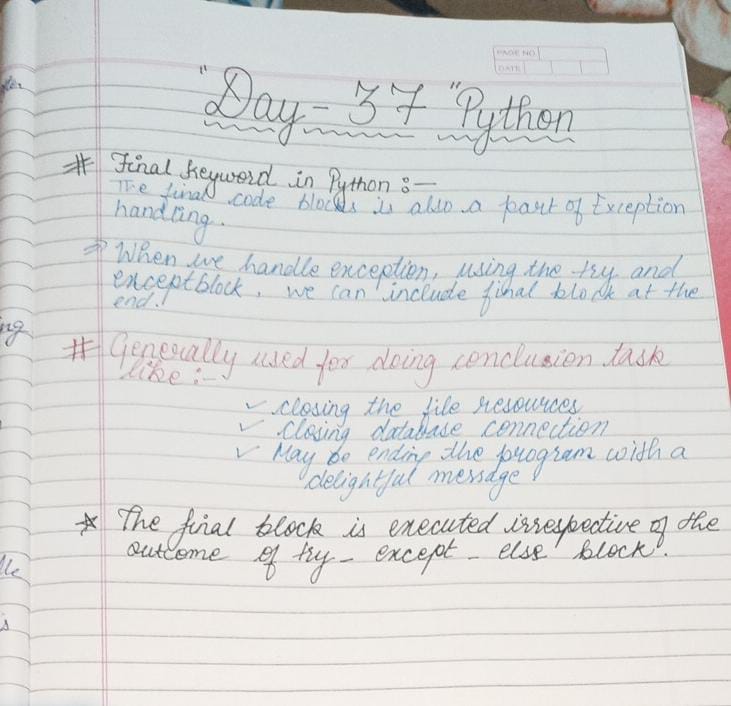 PAGE NO.
DATE
"Day - 37" Python
# Final keyword in Python :-
The final code blocks is also a part of Exception
handling.
⇒ When we handle exception, using the try and
except block, we can include final block at the
end.!
# Generally used for doing conclusion task
like :-
✓ closing the file resources
✓ closing database connection
✓ May be ending the program with a
delightful message
* The final block is executed irrespective of the
outcome of try - except - else block.
ng